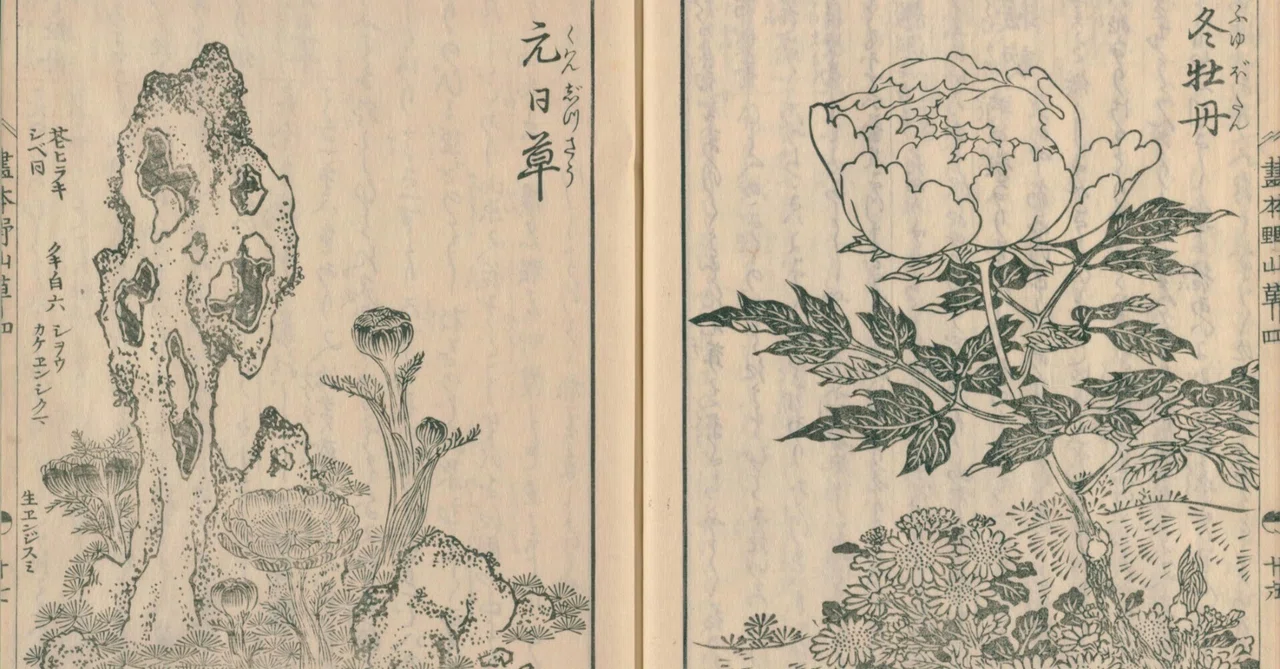 冬牡丹
ふゆぼたん
畫本野山草四
元日草
くわんじつさう
苍ヒラキ
シベ日
クキ白六
シヨウ
カケヱンシク
生ヱンジスミ
畫本野山草四